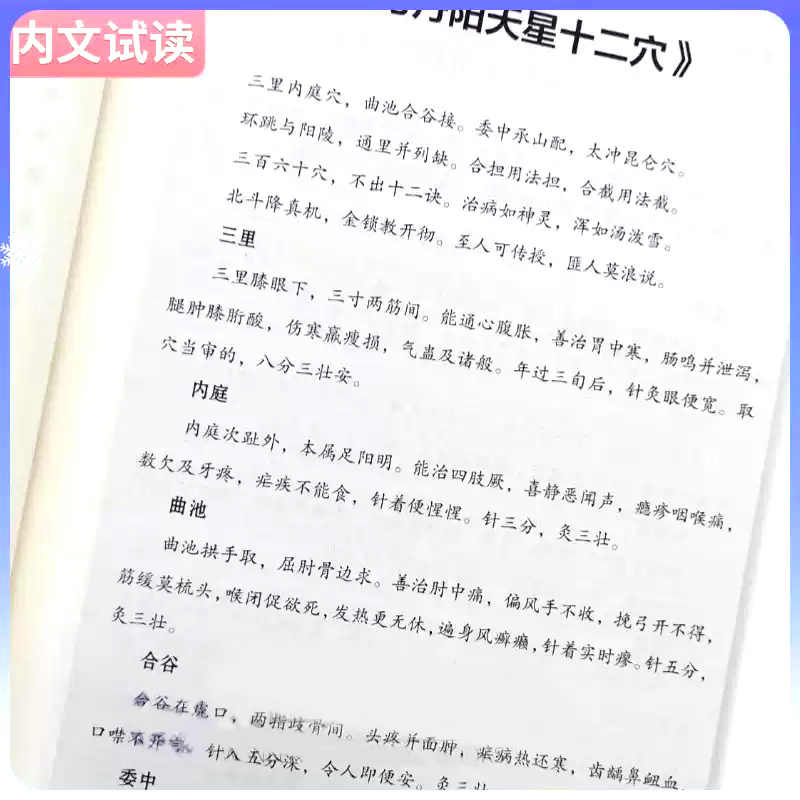 内文试读
阳天星十二穴》
三里内庭穴，曲池合谷接。委中承山配，太冲昆仑穴。
环跳与阳陵，通里并列缺。合担用法担，合截用法截。
三百六十穴，不出十二诀。治病如神灵，浑如汤泼雪。
北斗降真机，金锁教开彻。至人可传授，匪人莫浪说。
三里
三里膝眼下，三寸两筋间。能通心腹胀，善治胃中寒，肠鸣并泄泻，
腿肿膝胻酸，伤寒羸瘦损，气蛊及诸般。年过三旬后，针灸眼便宽。取
穴当审的，八分三壮安。
内庭
内庭次趾外，本属足阳明。能治四肢厥，喜静恶闻声，瘾疹咽喉痛，
数欠及牙疼，疟疾不能食，针着便惺惺。针三分，灸三壮。
曲池
曲池拱手取，屈肘骨边求。善治肘中痛，偏风手不收，挽弓开不得，
筋缓莫梳头，喉闭促欲死，发热更无休，遍身风癣癞，针着实时瘳。针五分，
灸三壮。
合谷
合谷在虎口，两指歧骨间。头疼并面肿，疟病热还寒，齿龋鼻衄血，
口噤不开言。针入五分深，令人即便安。灸三壮
委中